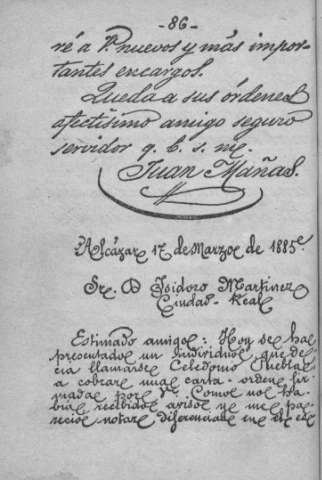 -86-
ré a V. nuevos y más impor-
tantes encargos.
Queda a sus órdenes
afectísimo amigo seguro
servidor q. b. s. m.
Juan Mañas.
Alcázar 17 de Marzo de 1885
Sr. D Isidoro Martinez
Ciudad-Real
Estimado amigo: Hoy se ha
presentado un individuo, que de-
cía llamarse Celedonio Puebla
a cobrar una carta-orden fir-
mada por V. Como no ha-
bía recibido aviso y me pa-
reció notar diferencia en el